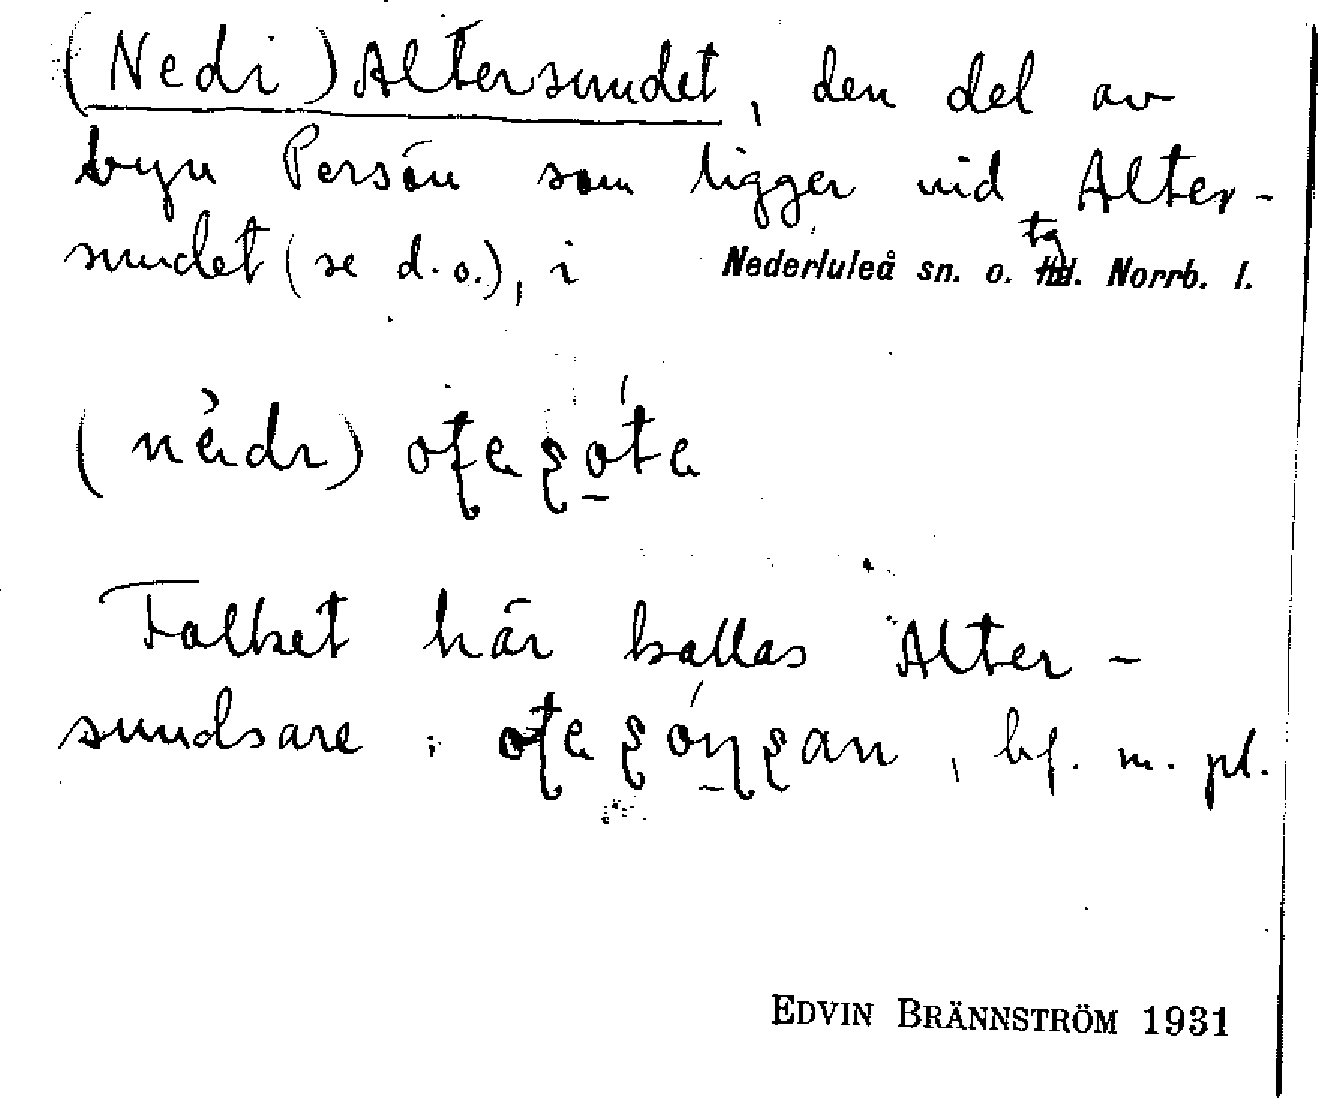 (Nedi) Altersundet, den del av
byn Persön som ligger vid Alter-
sundet (se d.o.), i Nederluleå sn. o. tg Norrb. l.
Folket här kallas Alter-
sundsare : , bf. m. pl.
EDVIN BRÄNNSTRÖM 1931